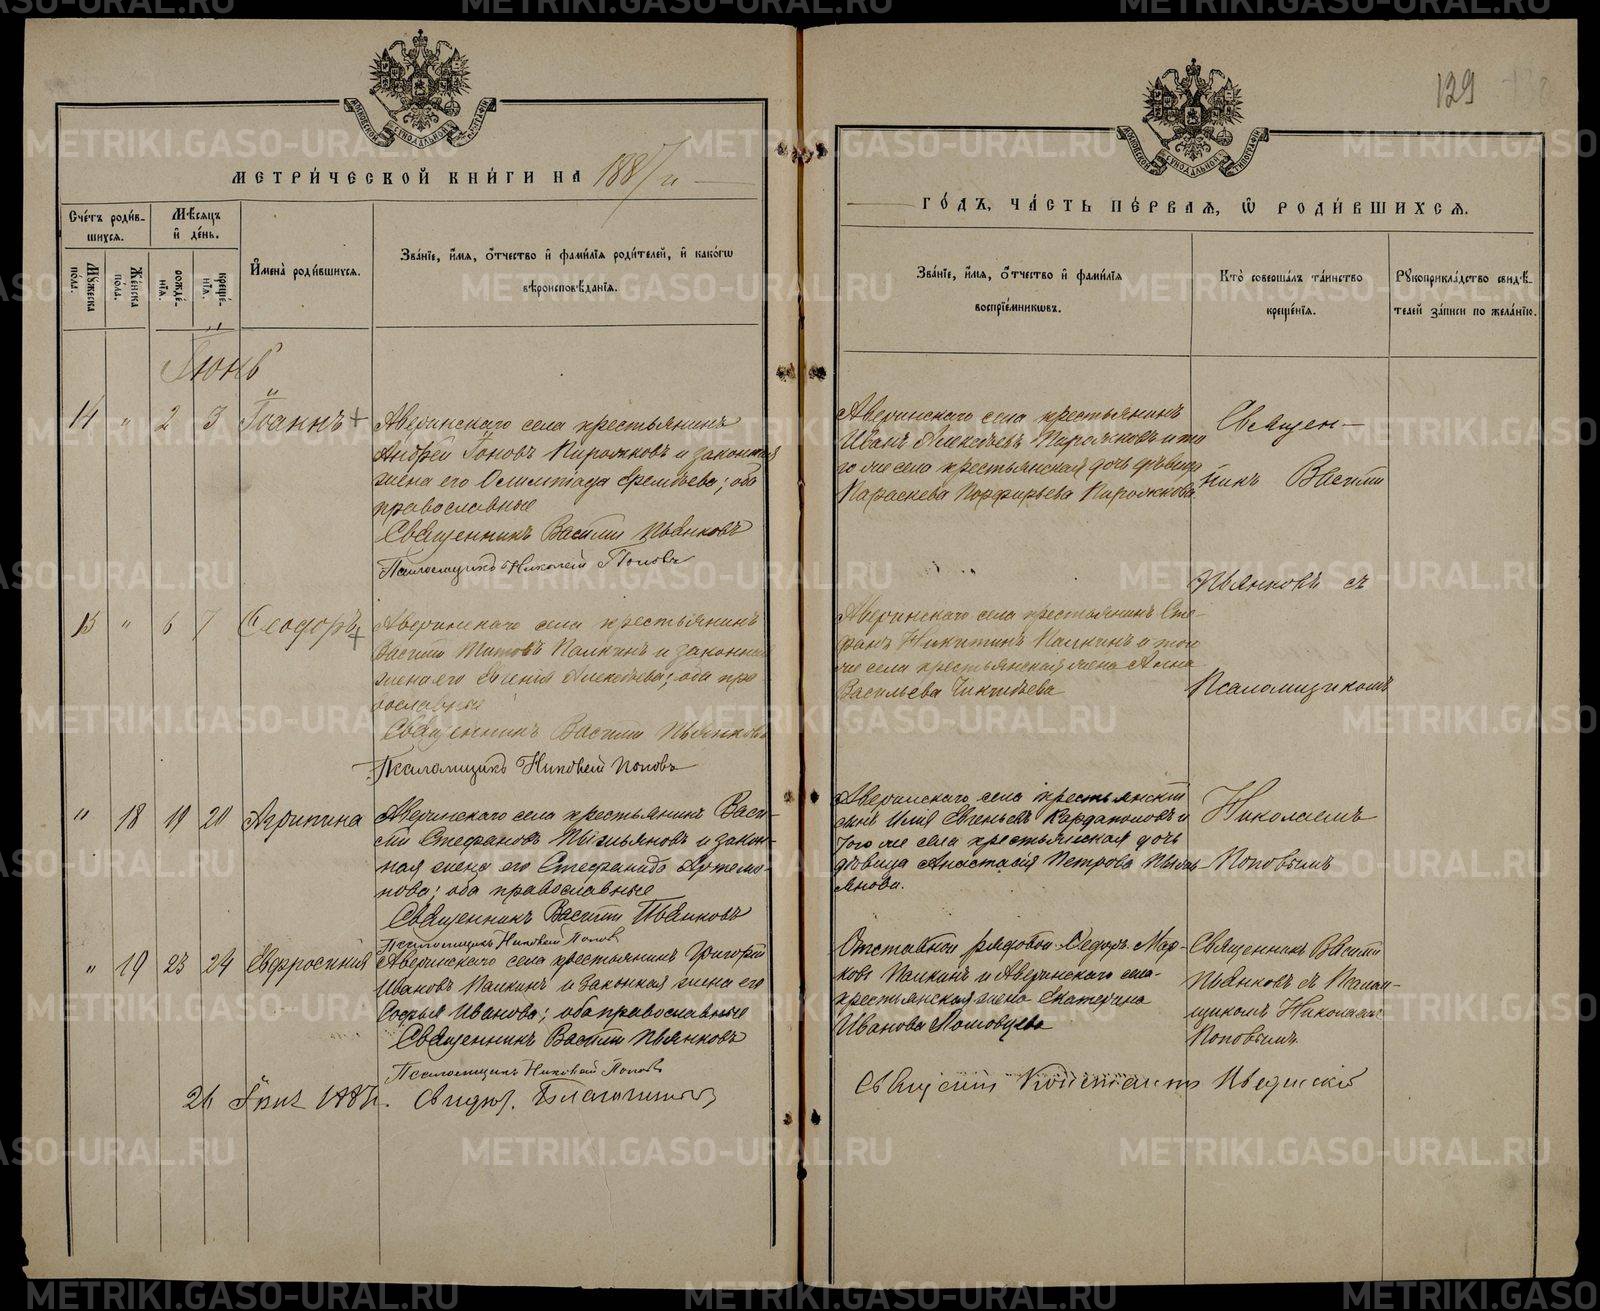 129
МЕТРИ́ЧЕСКОЙ КНИ́ГИ НА 1887 й
ГО́ДЪ, ЧА́СТЬ ПЕ́РВАЯ, Ѽ РОДИ́ВШИХСѦ.
Сче́тъ роди́в-
шихсѧ.
Мꙋ́жеска
по́ла.
Же́нска
пола.
Мѣ́сѧцъ
и҆ де́нь.
рожде́-
нїѧ.
креще́-
нїѧ.
И҆мена̀ роди́вшихсѧ.
Зва́нїе, и҆́мѧ, ѻ҆́тчество и҆ фами́лїѧ роди́телей, и҆ како́гѡ
вѣроисповѣ́данїѧ.
Зва́нїе, и҆́мѧ, ѻ҆́тчество и҆ фами́лїѧ
воспрїе́мникѡвъ.
Кто̀ соверша́лъ та́инство
креще́нїѧ.
Рꙋкоприкла́дство свидѣ́-
телей за́писи по жела́нїю.
Іюнь
14 " 2 3 Іоаннъ +
Аверинскаго села крестьянинъ
Андрей Іоновъ Пирожковъ и законная
жена его Олимпіада; оба
православные
Священникъ Василій Пьянковъ
Псаломщикъ Николай Поповъ
Аверинскаго села крестьянинъ
Иванъ Алексѣевъ Пирожковъ и то
го же села крестьянская дочь дѣвица
Параскева Порфирьева Пирожкова
Священ-
никъ Василій
Пьянковъ съ
Псаломщикомъ
Николаемъ
Поповымъ
15 " 6 7 Ѳеодоръ +
Аверинскаго села крестьянинъ
Василій Титовъ Палкинъ и законная
жена его Евгенія Алексѣева; оба пра
вославные
Священникъ Василій Пьянковъ
Псаломщикъ Николай Поповъ
Аверинскаго села крестьянинъ Сте-
фанъ Никитинъ Палкинъ и того
же села крестьянская жена Анна
Васильева
" 18 19 20 Агрипина
Аверинскаго села крестьянинъ Васи-
лій Стефановъ и закон-
ная жена его Стефанида Артемо-
нова; оба православные
Священникъ Василій Пьянковъ
Псаломщикъ Николай Поповъ
Аверинскаго села крестьянскій
сынъ Илія Евгеньевъ Кардаполовъ и
того же села крестьянская дочь
дѣвица Анастасія Петрова
" 19 23 24 Евфросинія
Аверинскаго села крестьянинъ Григорій
Ивановъ Палкинъ и законная жена его
Софья Иванова; оба православные
Священникъ Василій Пьянковъ
Псаломщикъ Николай Поповъ
Отставной рядовой Ѳедоръ Мар-
ковъ Палкинъ и Аверинскаго села
крестьянская жена Екатерина
Иванова
Священникъ Василій
Пьянковъ съ Псалом-
щикомъ Николаемъ
Поповымъ